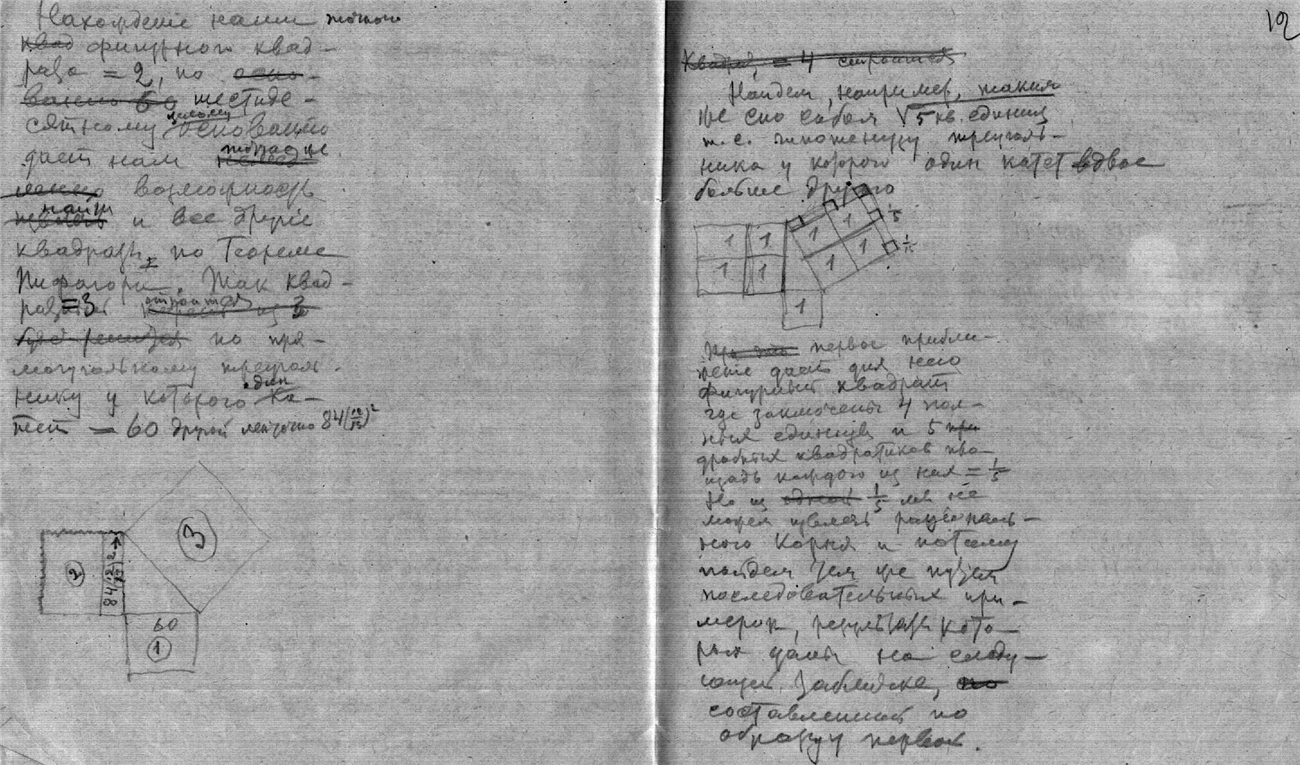 Нахождение нами точного
квад фигурного квад-
рата = 2, по осно-
ванию 60 шестиде-
сятному целому основанию
дает нам тоже
возможность
найти и все другие
квадраты, по Теореме
Пифагора. Так квад-
рат = 3 строится из 3
будет по пря-
моугольному треуголь-
нику у которого один ка-
тет = 60 другой 84(12/15)²
2
84(12/15)²
3
60
1
12
Квадрат = 4 строится
Найдем, например, таким
же способом √5 кв. единиц
т.е. гипотенузу треуголь-
ника у которого один катет вдвое
больше другого
1 1 1 1
1 1 1 1
1
1/5
1/5
При это первое прибли-
жение дает для него
фигурный квадрат
где заключены 4 пол-
ных единицы и 5 при
дробных квадратиков пло-
щадь каждого из них = 1/5
Но из одной 1/5 мы не
можем извлечь рациональ-
ного корня и потому
пойдем тем же путем
последовательных при-
меров, результаты кото-
рых даны на следу-
ющей таблице, по
составленной по
образцу первой.